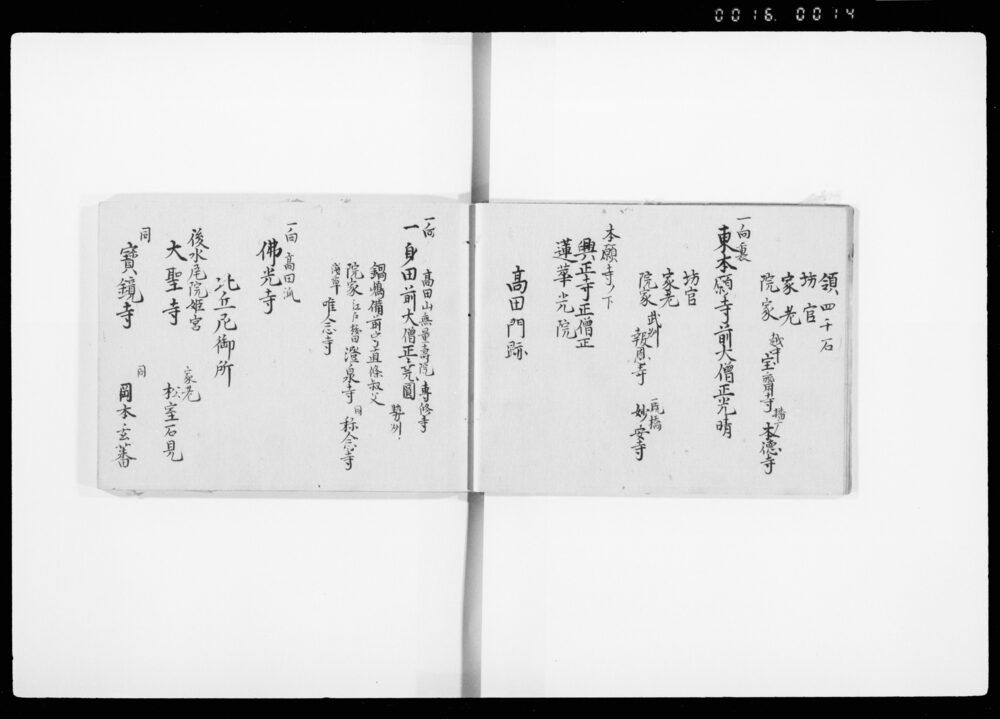 0016.0014
領四千石
坊官
家老
院家 越中 宝齊寺 播广 本徳寺
一向裏
東本願寺前大僧正光晴
坊官
家老
院家 武州 報恩寺 一尾橋 妙安寺
本願寺ノ下
興正寺正僧正
蓮華光院
高田門跡
一向 高田山無量壽院 専修寺
一身田前大僧正堯圓 勢州
鍋嶋備前守直條叔父
院家 江戸 澄泉寺 同 称念寺
浅草 唯念寺
一向 高田派
佛光寺
比丘尼御所
後水尾院姫宮
大聖寺 家老 松室石見
同
寳鏡寺 同 岡本玄蕃